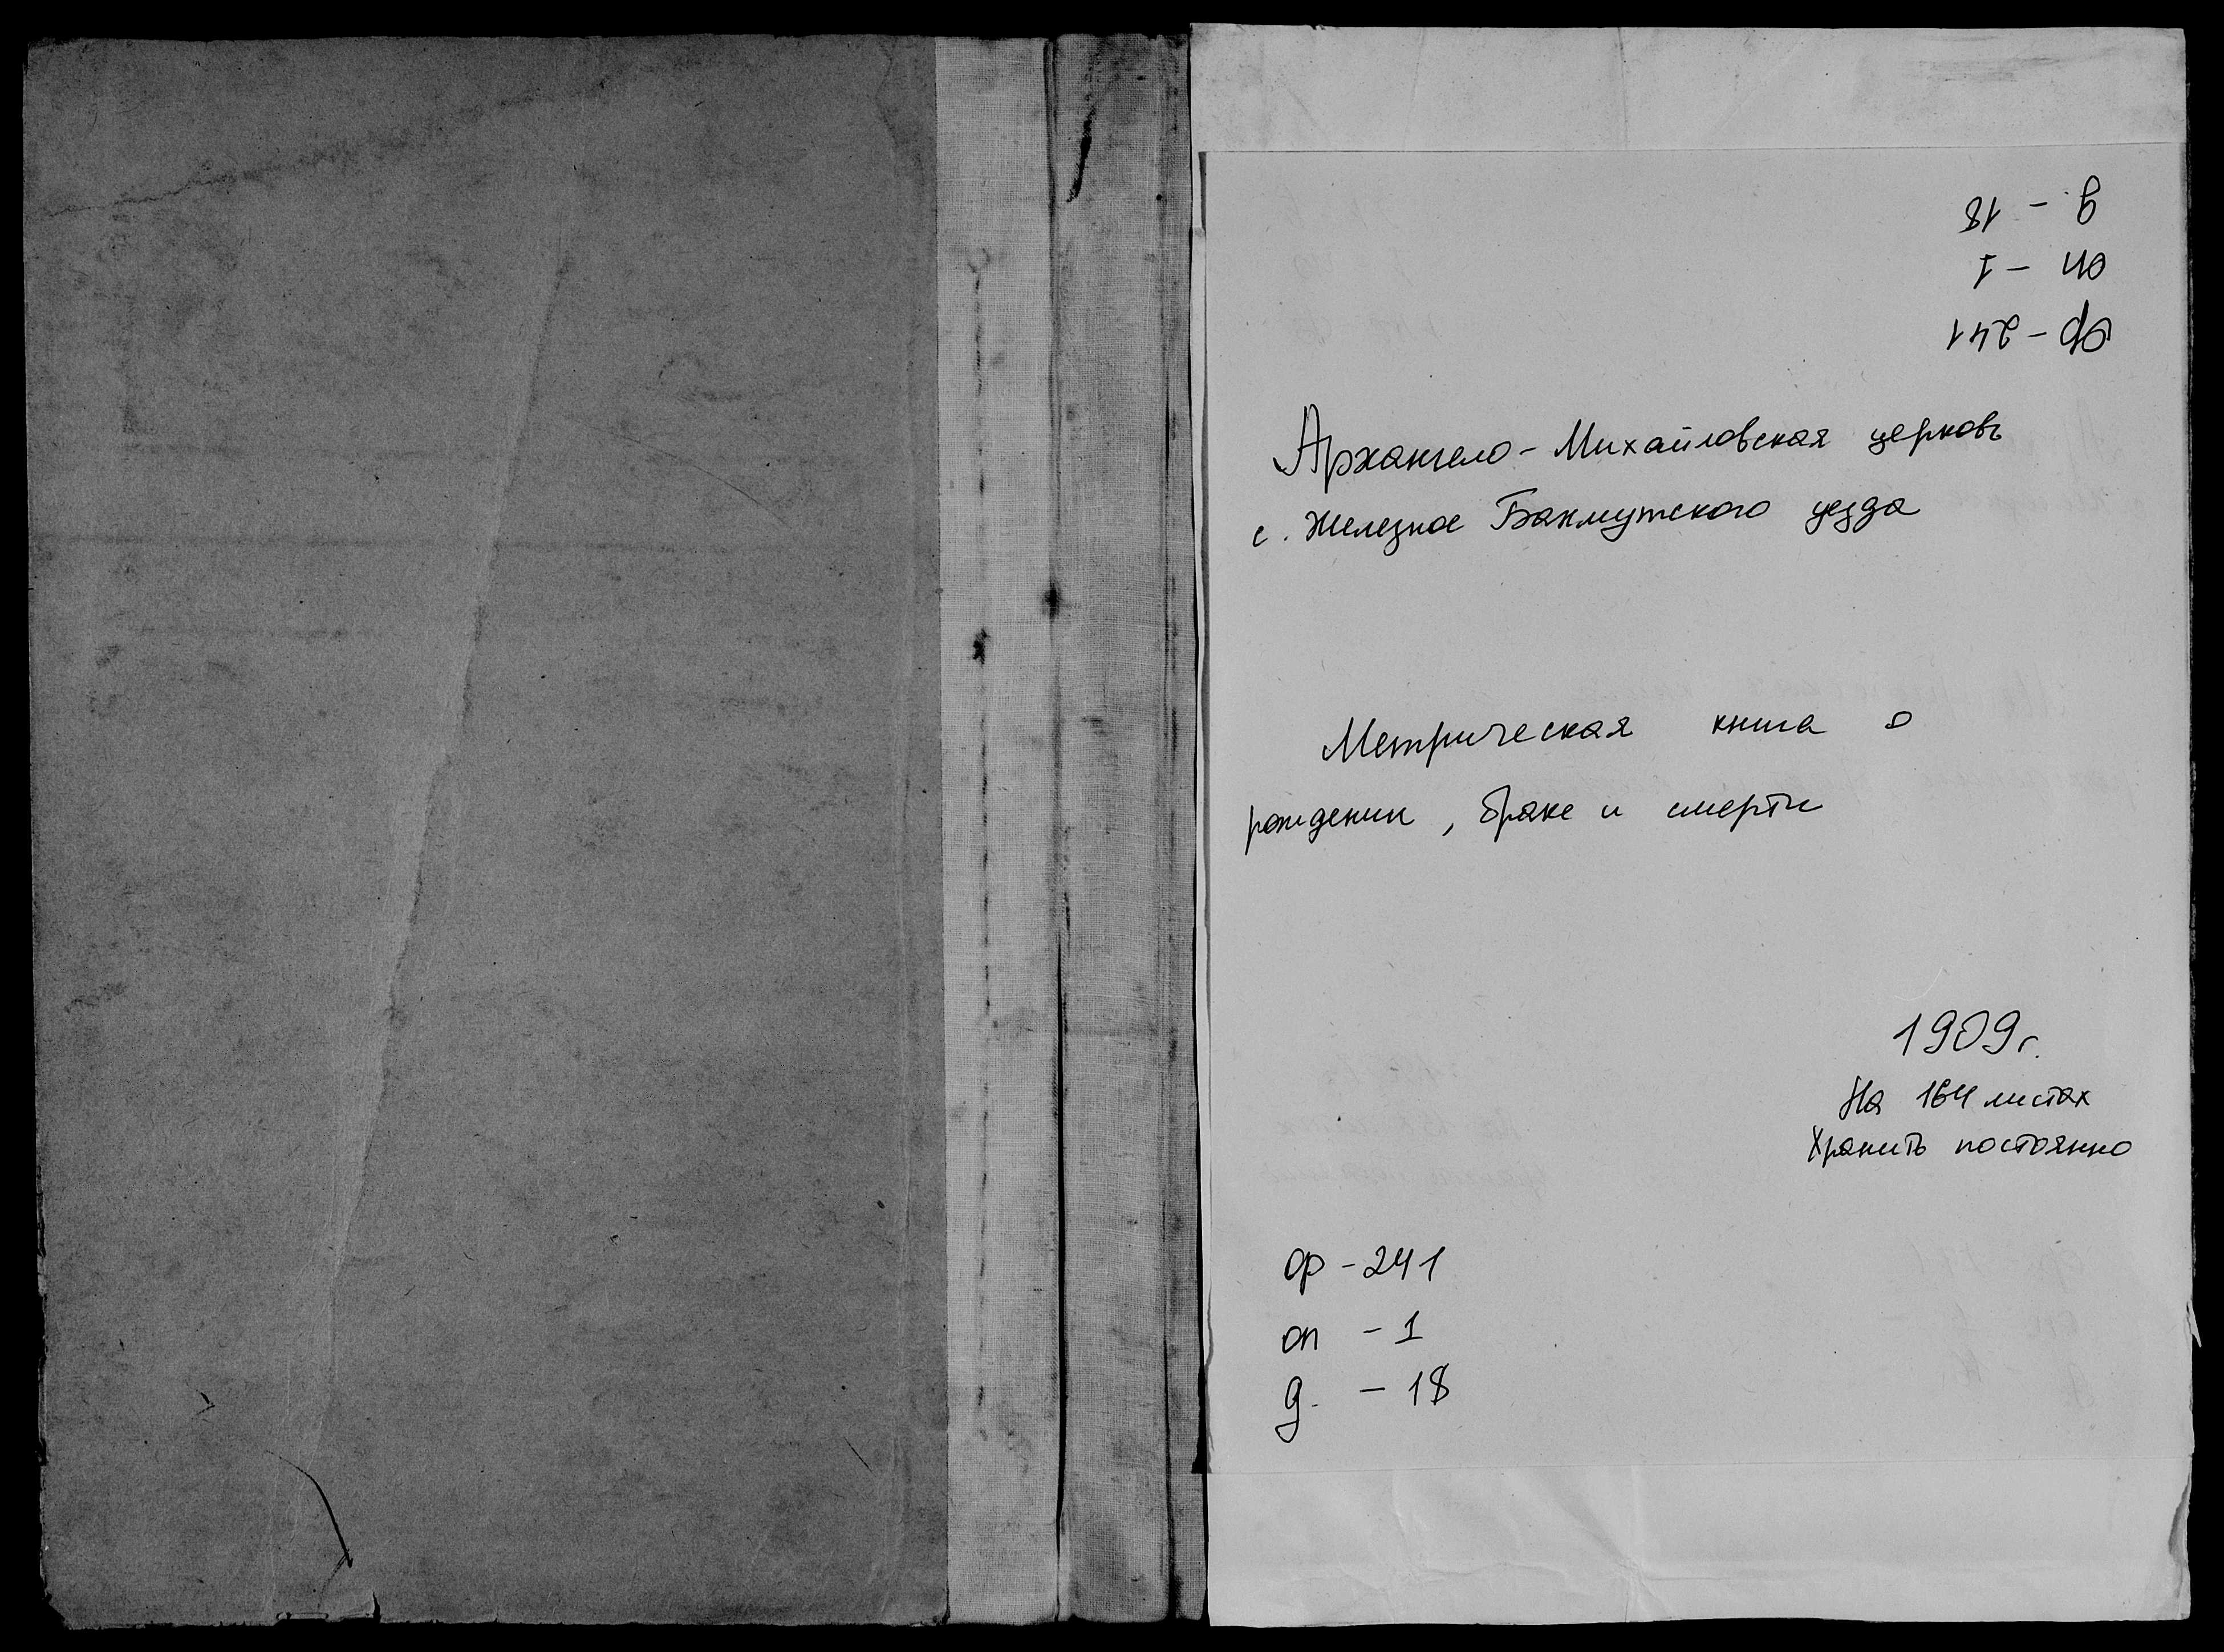 д - 18
оп - 1
ф - 241
Архангело-Михайловская церковь
с. Железное Бахмутского уезда
Метрическая книга о
рождении, браке и смерти
1909г.
На 164 листах
Хранить постоянно
ф - 241
оп - 1
д. - 18